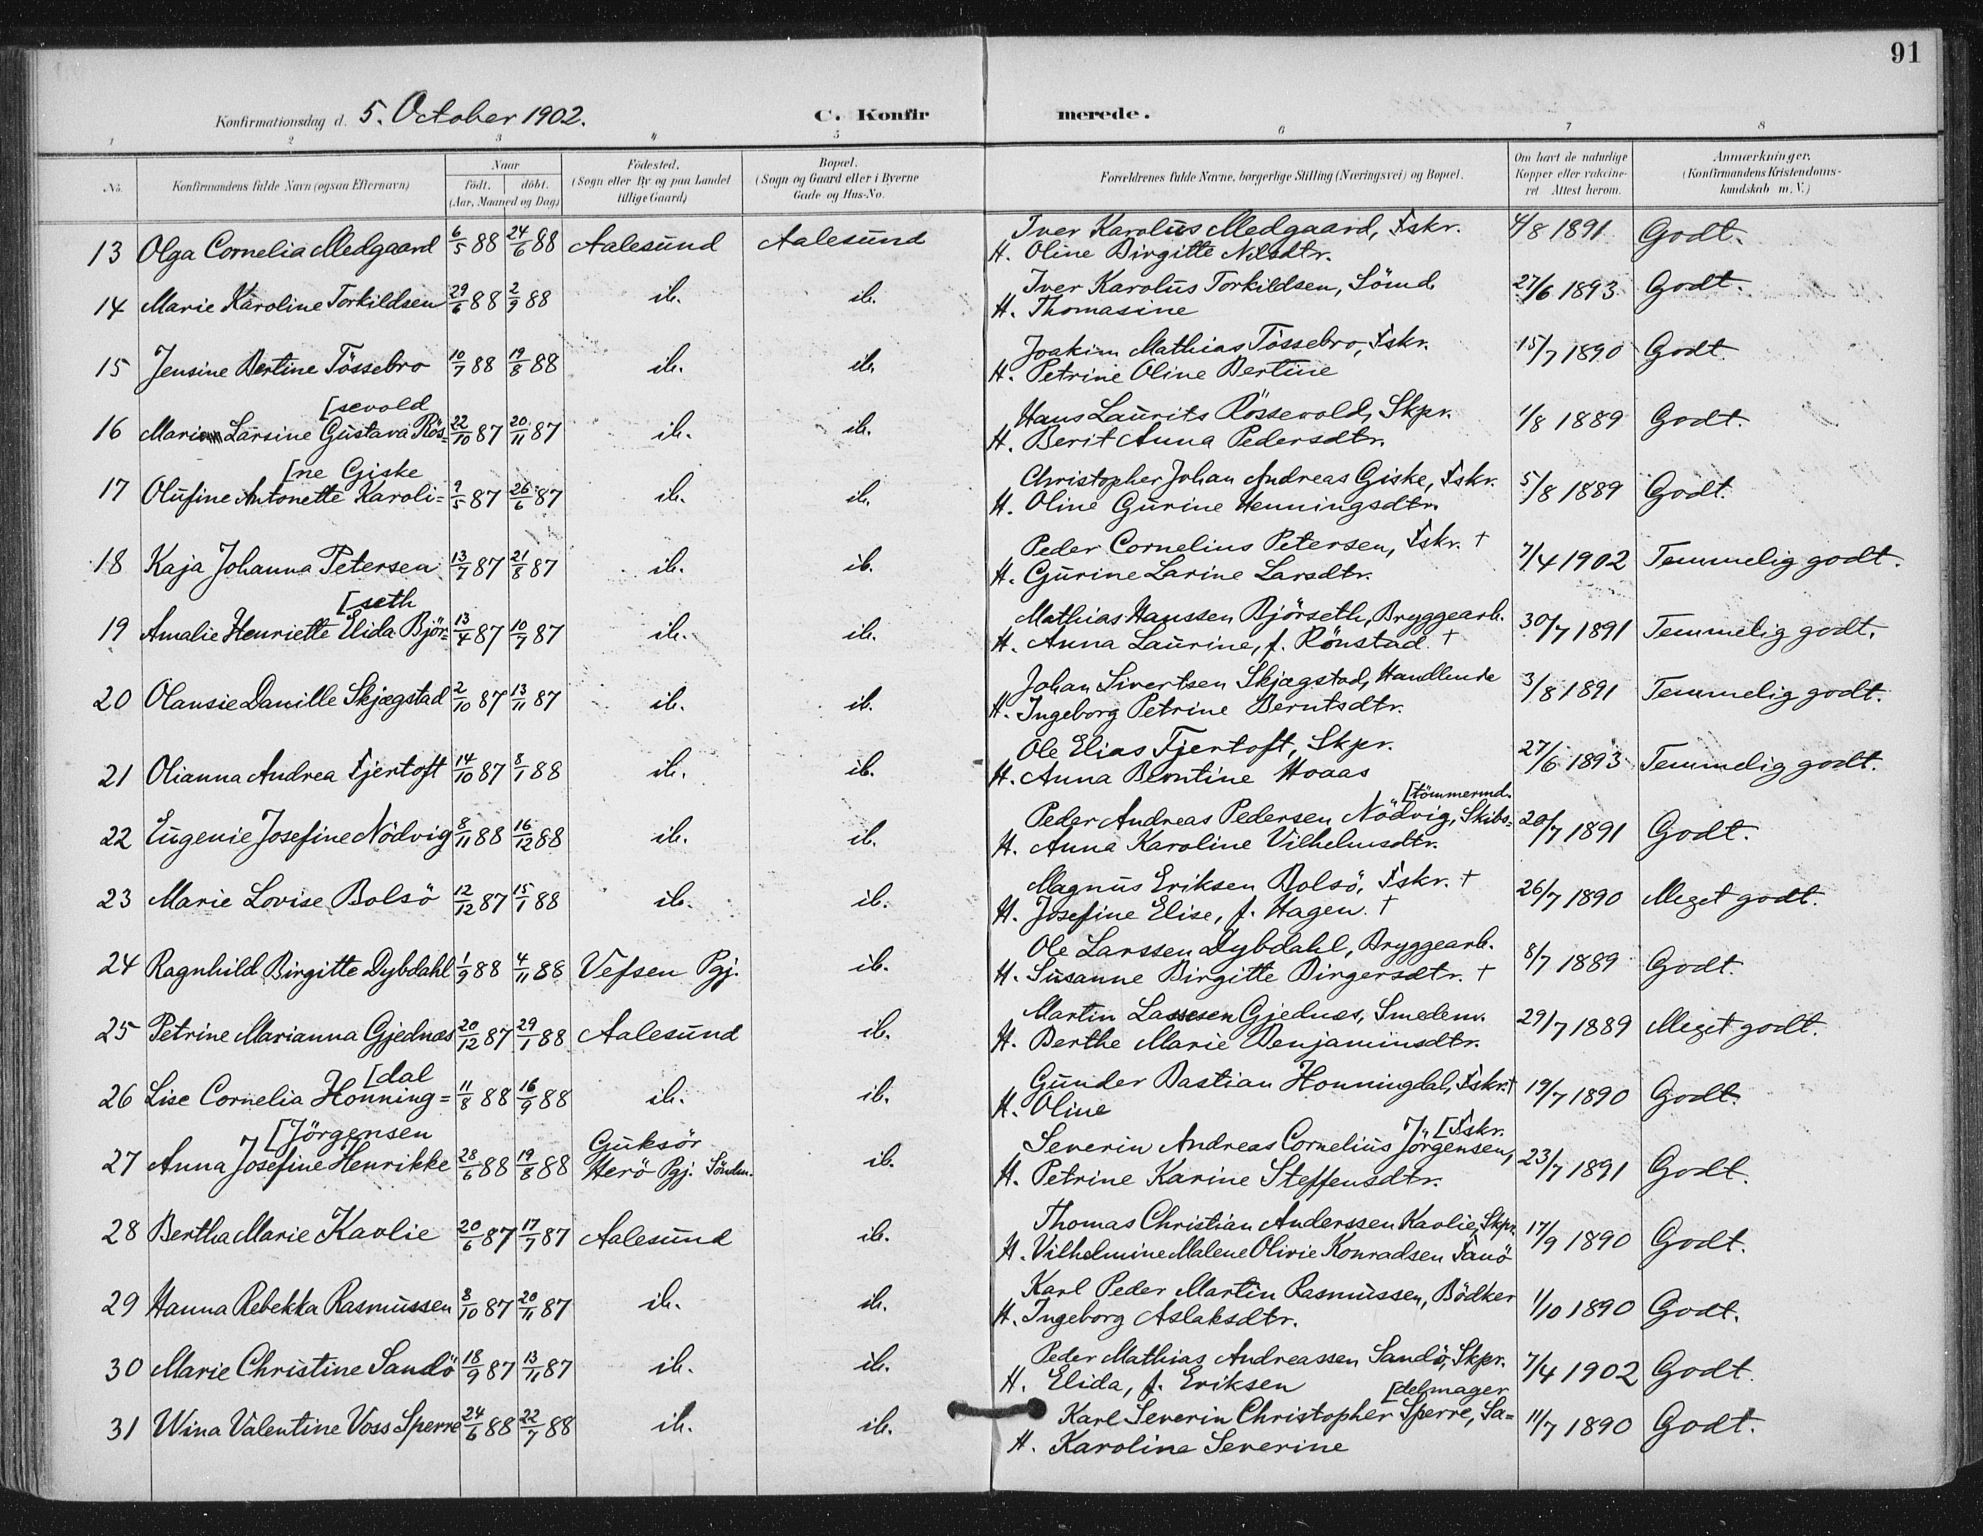 91
Konfirmationsdag d. 5. October 1902. C. Konfirmerede.
1 2 3 4 5 6 7 8
No. Konfirmandens fulde Navn (ogsaa Efternavn) Naar födt. döbt. (Aar, Maaned og Dag) Födested. (Sogn eller By og paa Landet tillige Gaard) Bopæl. (Sogn og Gaard eller i Byerne Gade og Hus-No. Forældrenes fulde Navne, borgerlige Stilling (Næringsvei) og Bopæl. Om havt de naturlige Kopper eller vaccineret Attest herom. Anmærkninger. (Konfirmandens Kristendomskundskab m. V.)
13 Olga Cornelia Medgaard 6/5 88 24/6 88 Aalesund Aalesund Iver Karolus Medgaard, Fskr. 4/8 1891 Godt.
H. Oline Birgitte Nilsdtr.
14 Marie Karoline Torkildsen 29/6 88 2/9 88 ib. ib. Iver Karolus Torkildsen, Sömd. 27/6 1893 Godt.
H. Thomasine
15 Jensine Bertine Tössebro 10/7 88 19/8 88 ib. ib. Joakim Mathias Tössebro, Fskr. 15/7 1890 Godt.
H. Petrine Oline Bertine
[sevold
16 Marie Larsine Gustava Rös- 22/10 87 20/11 87 ib. ib. Hans Laurits Rössevold, Skpr. 1/8 1889 Godt.
H. Berit Anna Pedersdtr.
[ne Giske
17 Olufine Antonette Karoli= 9/5 87 26/6 87 ib. ib. Christopher Johan Andreas Giske, Fskr. 5/8 1889 Godt.
H. Oline Gurine Henningsdtr.
18 Kaja Johanna Petersen 13/7 87 21/8 87 ib. ib. Peder Cornelius Petersen, Fskr. † 7/4 1902 Temmelig godt.
H. Gurine Larine Larsdtr.
[seth
19 Amalie Henriette Elida Björ= 13/4 87 10/7 87 ib. ib. Mathias Hanssen Björseth, Bryggearb. 30/7 1891 Temmelig godt.
H. Anna Laurine, f. Rönstad. †
20 Olausie Danille Skjægstad 2/10 87 13/11 87 ib. ib. Johan Sivertsen Skjægstad, Handlende 3/8 1891 Temmelig godt.
H. Ingeborg Petrine Berntsdtr.
21 Olianna Andrea Fjertoft 14/10 87 8/1 88 ib. ib. Ole Elias Fjertoft, Skpr. 27/6 1893 Temmelig godt.
H. Anna Berntine Hoaas
[tömmermd.
22 Eugenie Josefine Nödvig 8/11 88 16/12 88 ib. ib. Peder Andreas Pedersen Nödvig, Skibs= 20/7 1891 Godt.
H. Anna Karoline Vilhelmsdtr.
23 Marie Lovise Bolsö 12/12 87 15/1 88 ib. ib. Magnus Eriksen Bolsö, Fskr. † 26/7 1890 Meget godt.
H. Josefine Elise, f. Hagen. †
24 Ragnhild Birgitte Dybdahl 1/9 88 4/11 88 Vefsen Pgj. ib. Ole Larssen Dybdahl, Bryggearb. 8/7 1889 Godt.
H. Susanne Birgitte Birgersdtr. †
25 Petrine Marianna Gjednæs 20/12 87 29/1 88 Aalesund ib. Martin Lassesen Gjednæs, Smedem. 29/7 1889 Meget godt.
H. Berthe Marie Benjaminsdtr.
[dal
26 Lise Cornelia Honning= 11/8 88 16/9 88 ib. ib. Gunder Bastian Honningdal, Fskr. † 19/7 1890 Godt.
H. Oline
[Jörgensen Guksör [Fskr.
27 Anna Josefine Henrikke 28/6 88 19/8 88 Herö Pgj. Söndm. ib. Severin Andreas Cornelius Jörgensen, 23/7 1891 Godt.
H. Petrine Karine Steffensdtr.
28 Bertha Marie Kavlie 20/6 87 17/7 87 Aalesund ib. Thomas Christian Anderssen Kavlie, Skpr. 17/9 1890 Godt.
H. Vilhelmine Malene Olivie Konradsen Fanö
29 Hanna Rebekka Rasmussen 8/10 87 20/11 87 ib. ib. Karl Peder Martin Rasmussen, Bödker 1/10 1890 Godt.
H. Ingeborg Aslaksdtr.
30 Marie Christine Sandö 18/9 87 13/11 87 ib. ib. Peder Mathias Andreassen Sandö, Skpr. 7/4 1902 Godt.
H. Elida, f. Eriksen
[delmager
31 Wina Valentine Voss Sperre 24/6 88 22/7 88 ib. ib. Karl Severin Christopher Sperre, Sa= 11/7 1890 Godt.
H. Karoline Severine